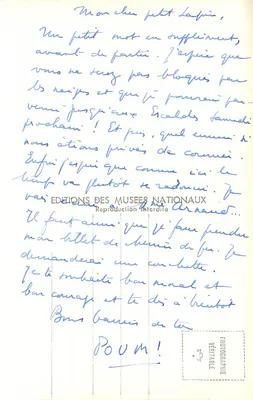 Mon cher petit Lapin,
Un petit mot en supplément,
avant de partir. J'espère que
vous ne serez pas bloqués par
les neiges et que je pourrai par-
venir jusqu'aux Escaldes samedi
prochain ! Et puis, quel ennui si
nous étions privés de courrier.
Enfin j'espère que comme ici le
temps va plutôt se radoucir. Je
vais
EDITIONS DES MUSÉES NATIONAUX
Reproduction interdite
Il faut aussi que je fasse prendre
mon billet de chemin de fer. Je
demanderai une couchette.
Je te souhaite bon moral et
bon courage et te dis à bientôt
Bons baisers de ton
POUM !
PHOTOGRAPHIE
VÉRITABLE